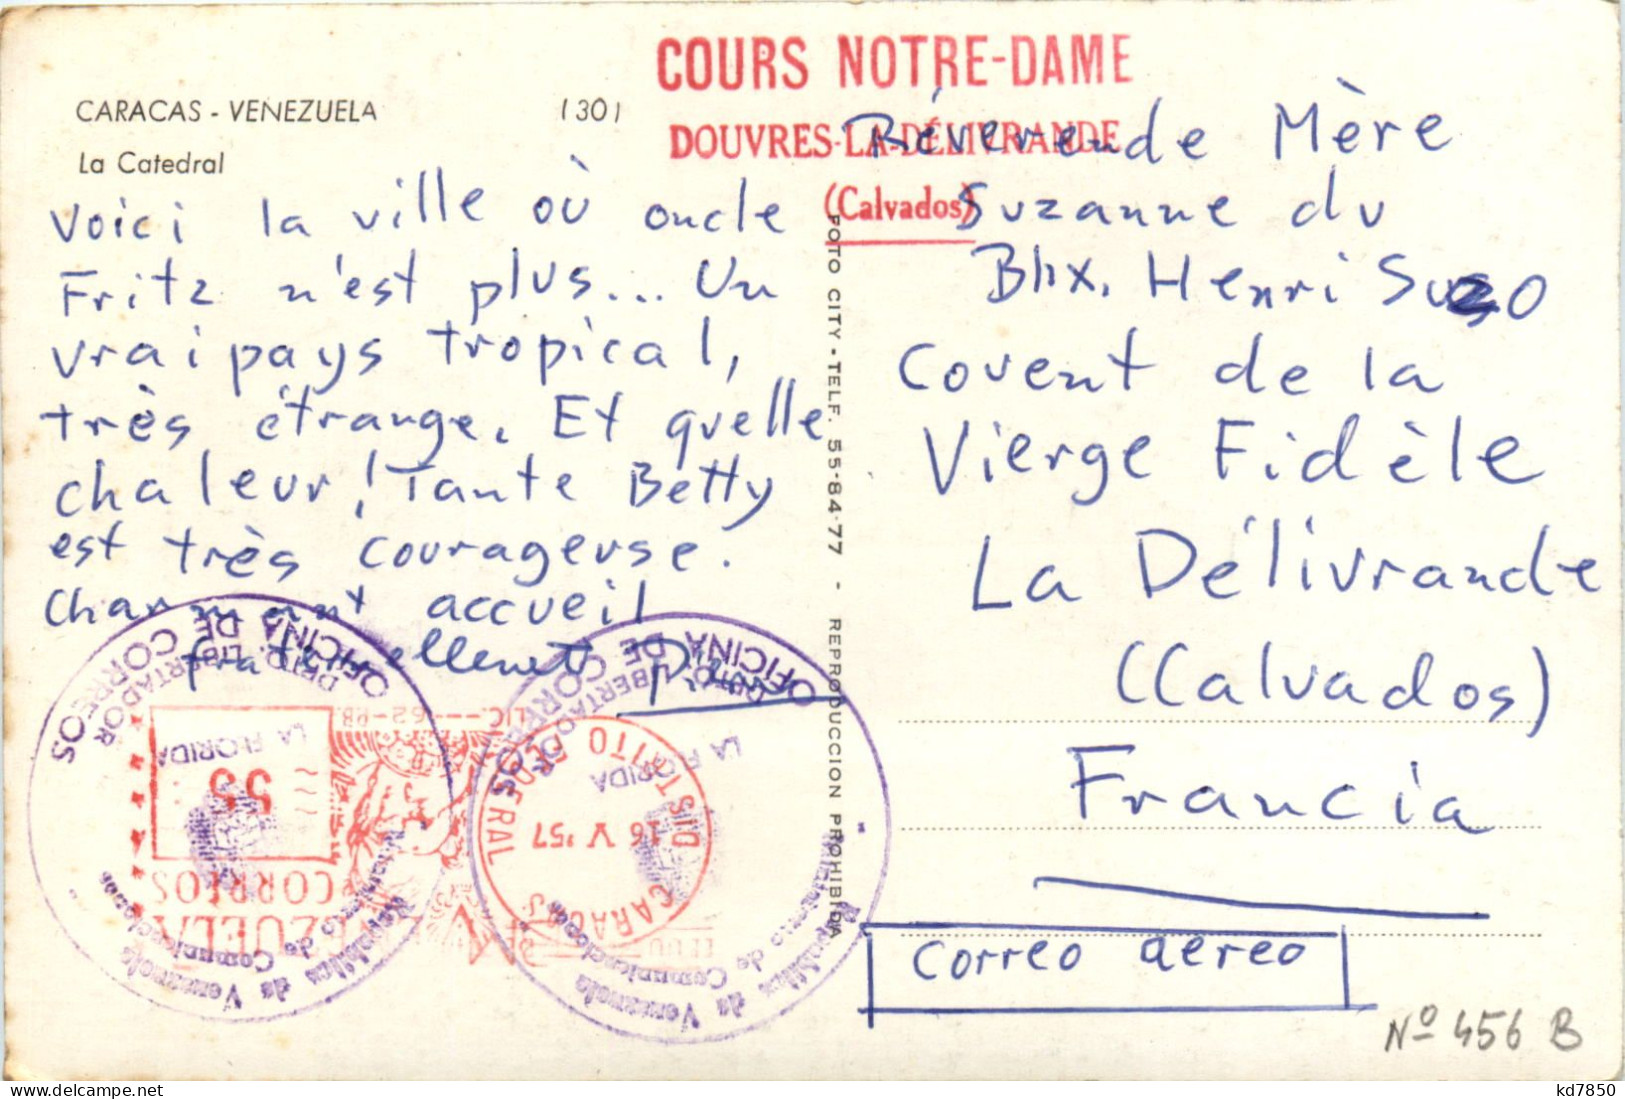 CARACAS - VENEZUELA (30)
La Catedral
Voici la ville où oncle
Fritz n'est plus... Un
vrai pays tropical,
très étrange. Et quelle
chaleur! Tante Betty
est très courageuse.
Charmant accueil
fraternellement
COURS NOTRE-DAME
DOUVRES-LA-DÉLIVRANDE
(Calvados)
Révérende Mère
Suzanne du
Bhx. Henri Suzo
Covent de la
Vierge Fidèle
La Délivrande
(Calvados)
Francia
correo aereo
Nº 456 B
FOTO CITY - TELF. 55-84-77 - REPRODUCCION PROHIBIDA
OFICINA DE CORREOS
DPTO. LIBERTADOR
LA FLORIDA
República de Venezuela
Ministerio de Comunicaciones
55
CORREOS
OFICINA DE CORREOS
DPTO. LIBERTADOR
LA FLORIDA
República de Venezuela
Ministerio de Comunicaciones
DISTRITO FEDERAL
16 V '57
CARACAS
kd7850